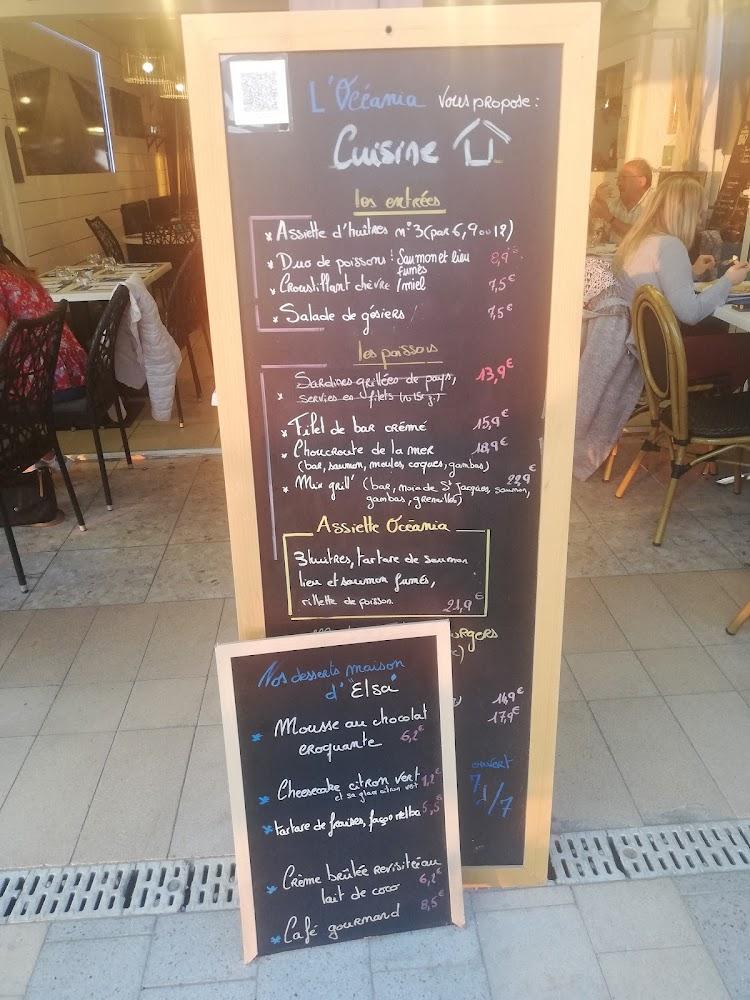 L'Océania vous propose :
Cuisine
les entrées
* Assiette d'huîtres n°3 (par 6, 9 ou 12)
* Duo de poissons : Saumon et lieu fumés 8,9€
* Croustillant chèvre / miel 7,5€
* Salade de gésiers 7,5€
les poissons
* Sardines grillées de pays, 13,9€
servies en filets
* Filet de bar crémé 15,9€
* Choucroute de la mer 18,9€
(bar, saumon, moules, coques, gambas)
* Mix grill' (bar, noix de St Jacques, saumon, 22,9€
gambas, grenailles)
Assiette Océania
3 huîtres, tartare de saumon
lieu et saumon fumés,
rillette de poisson 21,9€
URGERS
14,9€
17,9€
ouvert
7j/7
Nos desserts maison
d' "Elsa"
* Mousse au chocolat
croquante 6,2€
* Cheesecake citron vert
et sa glace citron vert
* tartare de fraises, façon melba 5,5€
* Crème brûlée revisitée au
lait de coco 6,2€
* Café gourmand 8,5€